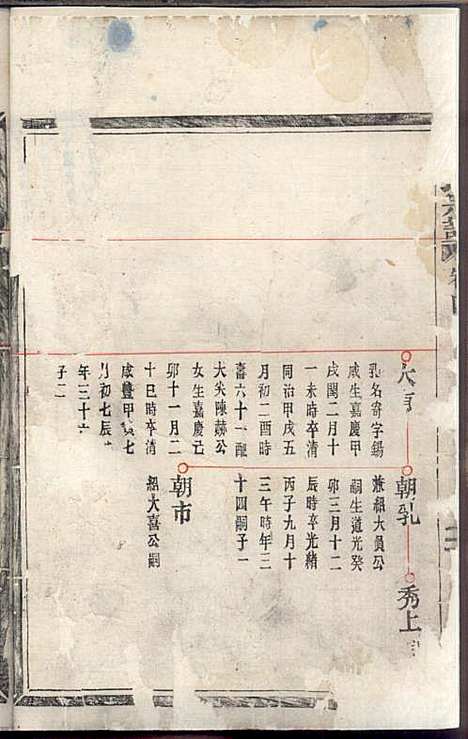 大
乳名寄字錫
咸生嘉慶甲
戌閏二月十
一未時卒清
同治甲戌五
月初二酉時
壽六十一配
大尖陳公
女生嘉慶己
卯十一月二
十巳時卒清
咸豐甲寅七
月初七辰
年三十六
子二
朝乳
兼紹大員公
嗣生道光癸
卯三月十二
辰時卒光緒
丙子九月十
三午時年三
十四嗣子一
朝市
紹大喜公嗣
秀上